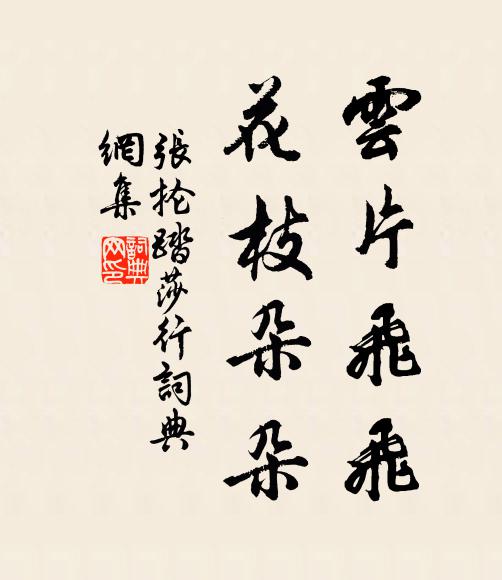 雲片飛飛
花枝朵朵
張抡踏莎行詞典
網集
詞典
网印